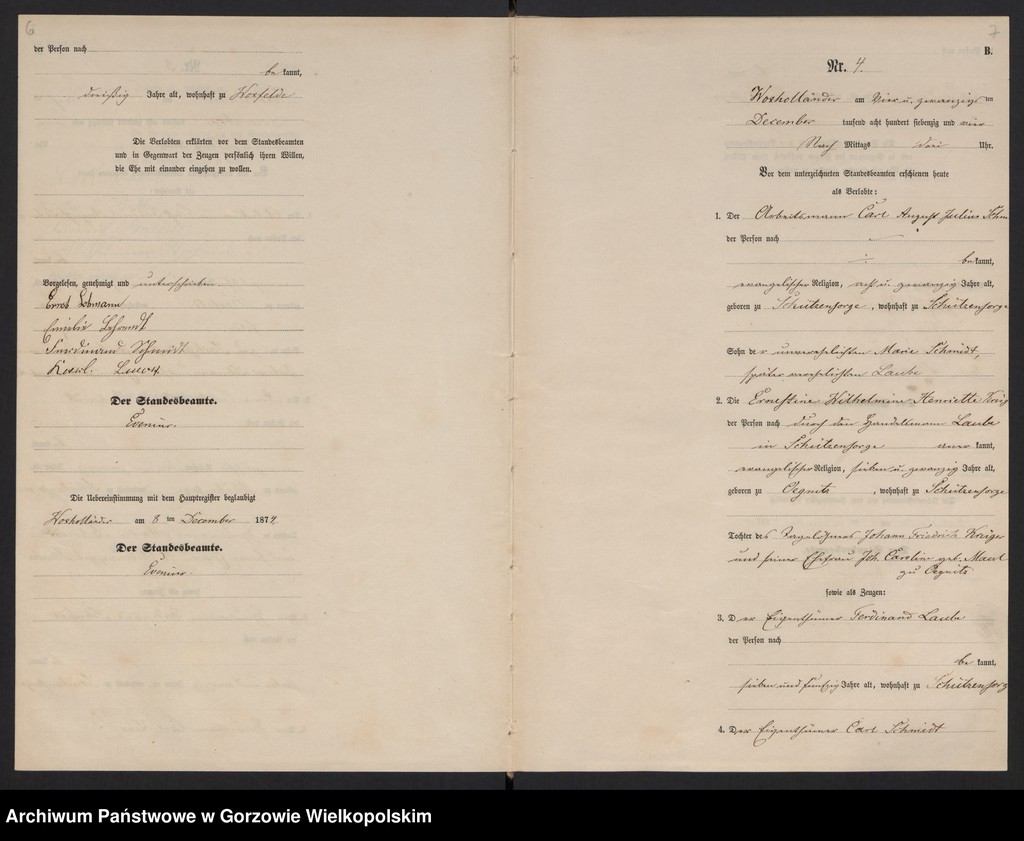 6
der Person nach
be kannt,
dreißig Jahre alt, wohnhaft zu Woxfelde
Die Verlobten erklärten vor dem Standesbeamten
und in Gegenwart der Zeugen persönlich ihren Willen,
die Ehe mit einander eingehen zu wollen.
Vorgelesen, genehmigt und unterschrieben.
Ernst Lehmann
Emilie
Ferdinand Schmidt
Der Standesbeamte.
Die Uebereinstimmung mit dem Hauptregister beglaubigt
Woxholländer am 8 ten December 1874
Der Standesbeamte.
7
B.
Nr. 4.
Woxholländer am Vier u. zwanzigs ten
December tausend acht hundert siebenzig und vier
Nach Mittags drei Uhr.
Vor dem unterzeichneten Standesbeamten erschienen heute
als Verlobte:
1. Der Arbeitsmann Carl August Julius Schm
der Person nach
be kannt,
evangelischer Religion, acht u. zwanzig Jahre alt,
geboren zu Schützensorge, wohnhaft zu Schützensorge
Sohn der unverehelichten Marie Schmidt,
später verehelichten Laube
2. Die Ernestine Wilhelmine Henriette Krüg
der Person nach durch den Handelsmann Laube
in Schützensorge aner kannt,
evangelischer Religion, sieben u. zwanzig Jahre alt,
geboren zu Oegnitz, wohnhaft zu Schützensorge
Tochter des Tagelöhners Johann Friedrich Krüger
und seiner Ehefrau Joh. Caroline geb.
zu Oegnitz
sowie als Zeugen:
3. Der Eigenthümer Ferdinand Laube
der Person nach
be kannt,
sieben und fünfzig Jahre alt, wohnhaft zu Schützensorg
4. Der Eigenthümer Carl Schmidt
Archiwum Państwowe w Gorzowie Wielkopolskim